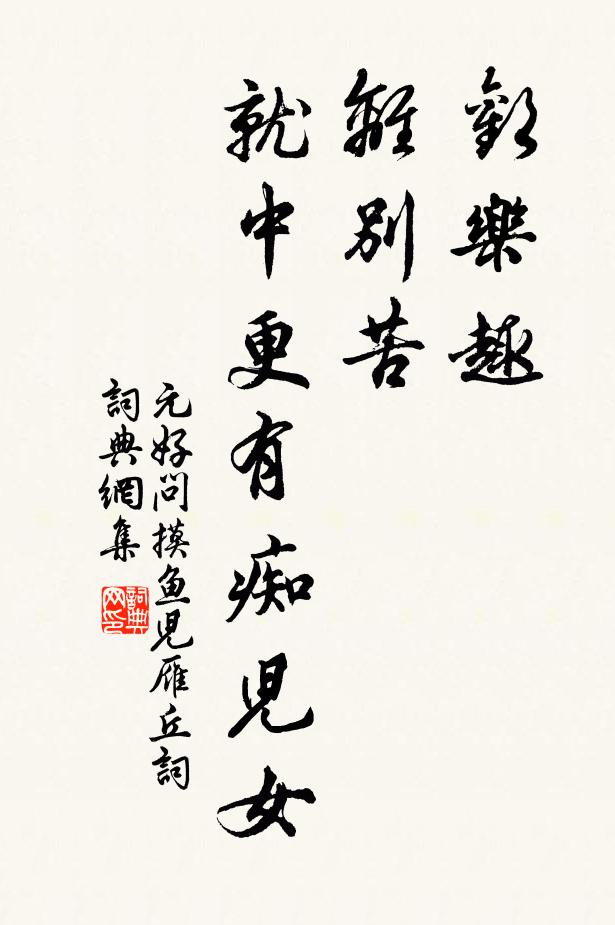 歡樂趣
離別苦
就中更有痴兒女
元好问摸鱼兒雁丘詞
詞典網集
詞典网印